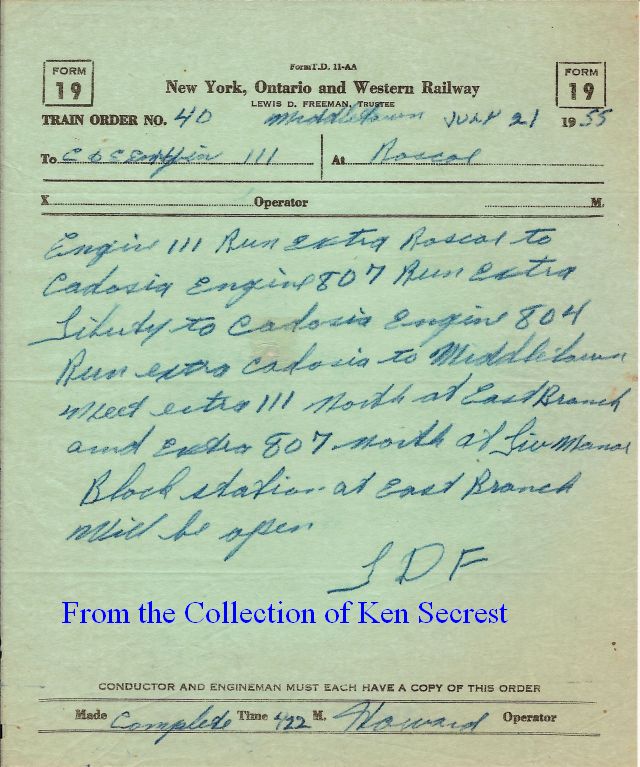 FORM 19
Form T.D. 11-AA
FORM 19
New York, Ontario and Western Railway
LEWIS D. FREEMAN, TRUSTEE
TRAIN ORDER NO. 40 Middletown JULY 21 1955
To C & E 111 At Roscoe
X Operator M.
Engine 111 Run extra Roscoe to
Cadosia Engine 807 Run Extra
Liberty to Cadosia Engine 804
Run extra Cadosia to Middletown
Meet extra 111 North at East Branch
and Extra 807 North at Liv Manor
Block station at East Branch
Will be open
D F
From the Collection of Ken Secrest
CONDUCTOR AND ENGINEMAN MUST EACH HAVE A COPY OF THIS ORDER
Made Complete Time 422 M. Howard Operator